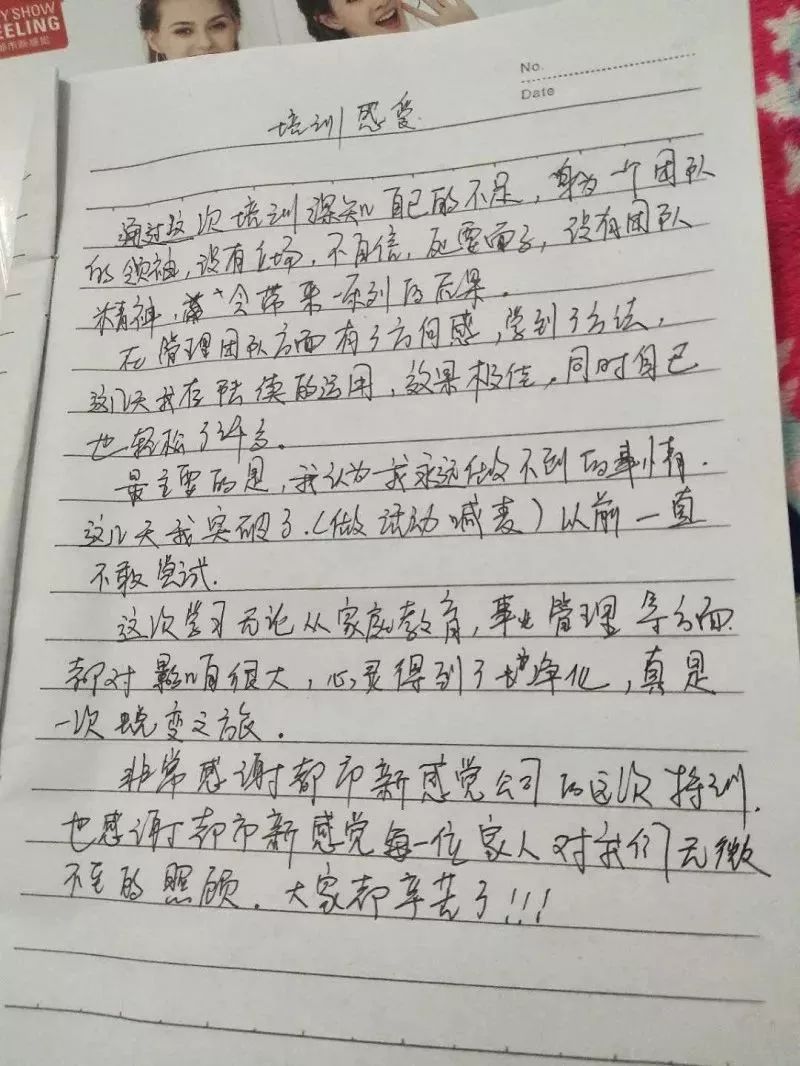 Y'SHOW
EELING
都市新感觉
No.
Date
培训感受
通过这次培训深知自己的不足,身为一个团队
的领袖,没有立场,不自信,死要面子,没有团队
精神,会带来一系列的后果.
在管理团队方面有了方向感,学到了方法,
这几天我在陆续的运用,效果极佳,同时自己
也轻松了许多.
最主要的是,我认为我永远做不到的事情.
这几天我突破了.(做活动喊麦)以前一直
不敢尝试.
这次学习无论从家庭教育,事业管理等方面.
都对影响很大,心灵得到了净化,真是
一次蜕变之旅.
非常感谢都市新感觉公司的这次特训.
也感谢都市新感觉每一位家人对我们无微
不至的照顾.大家都辛苦了!!!